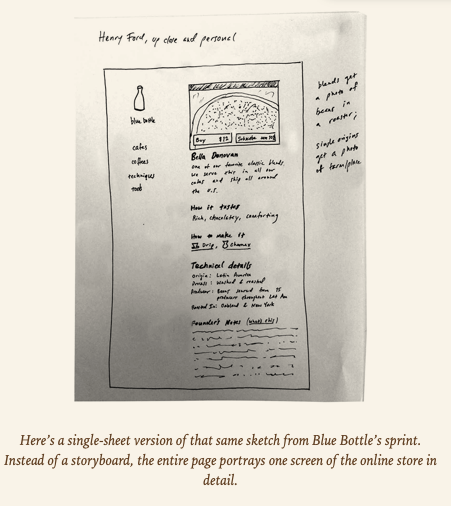 Henry Ford, up close and personal
blue bottle
cafes
coffees
techniques
tools
Buy $12
Subscribe
Bella Donovan
One of our favorite classic blends.
We serve this in all our
cafes and ship all around
the U.S.
How it tastes
Rich, chocolatey, comforting
How to make it
Drip, Chemex
Technical details
Origin: Latin America
Process: Washed & roasted
Producer: Beans sourced from
producers throughout Lat Am
Roasted In: Oakland & New York
Founder's Notes (what's this)
blends get
a photo of
beans in
a roaster;
single origins
get a photo
of farm/place
Here's a single-sheet version of that same sketch from Blue Bottle's sprint.
Instead of a storyboard, the entire page portrays one screen of the online store in
detail.